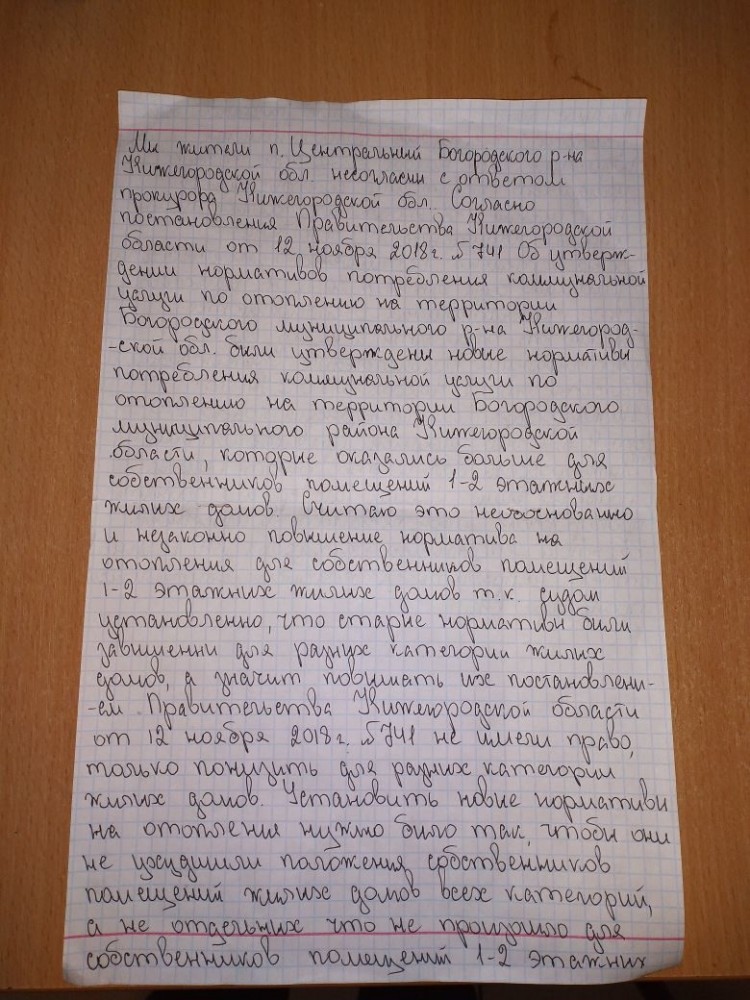 Мы жители п. Центральный Богородского р-на
Нижегородской обл. несогласны с ответом
прокурора Нижегородской обл. Согласно
постановления Правительства Нижегородской
области от 12 ноября 2018г. №741 Об утверж-
дении нормативов потребления коммунальной
услуги по отоплению на территории
Богородского муниципального р-на Нижегород-
-ской обл. были утверждены новые нормативы
потребления коммунальной услуги по
отоплению на территории Богородского
муниципального района Нижегородской
области, которые оказались больше для
собственников помещений 1-2 этажных
жилых домов. Считаю это необоснованно
и незаконно повышение норматива на
отопления для собственников помещений
1-2 этажных жилых домов т.к. судом
установленно, что старые нормативы были
завышенны для разных категории жилых
домов, а значит повышать их постановлени-
-ем Правительства Нижегородской области
от 12 ноября 2018г. №741 не имели право,
только понизить для разных категории
жилых домов. Установить новые нормативы
на отопления нужно было так, чтобы они
не ухудшили положения собственников
помещений жилых домов всех категорий,
а не отдельных что не произошло для
собственников помещений 1-2 этажных